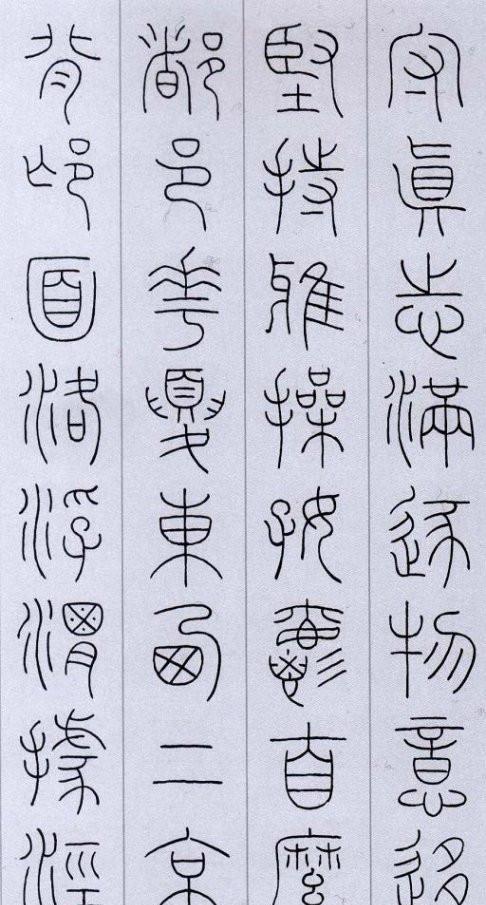 守眞志滿逐物意移
堅持雅操好爵自縻
都邑華夏東西二京
背邙面洛浮渭據涇